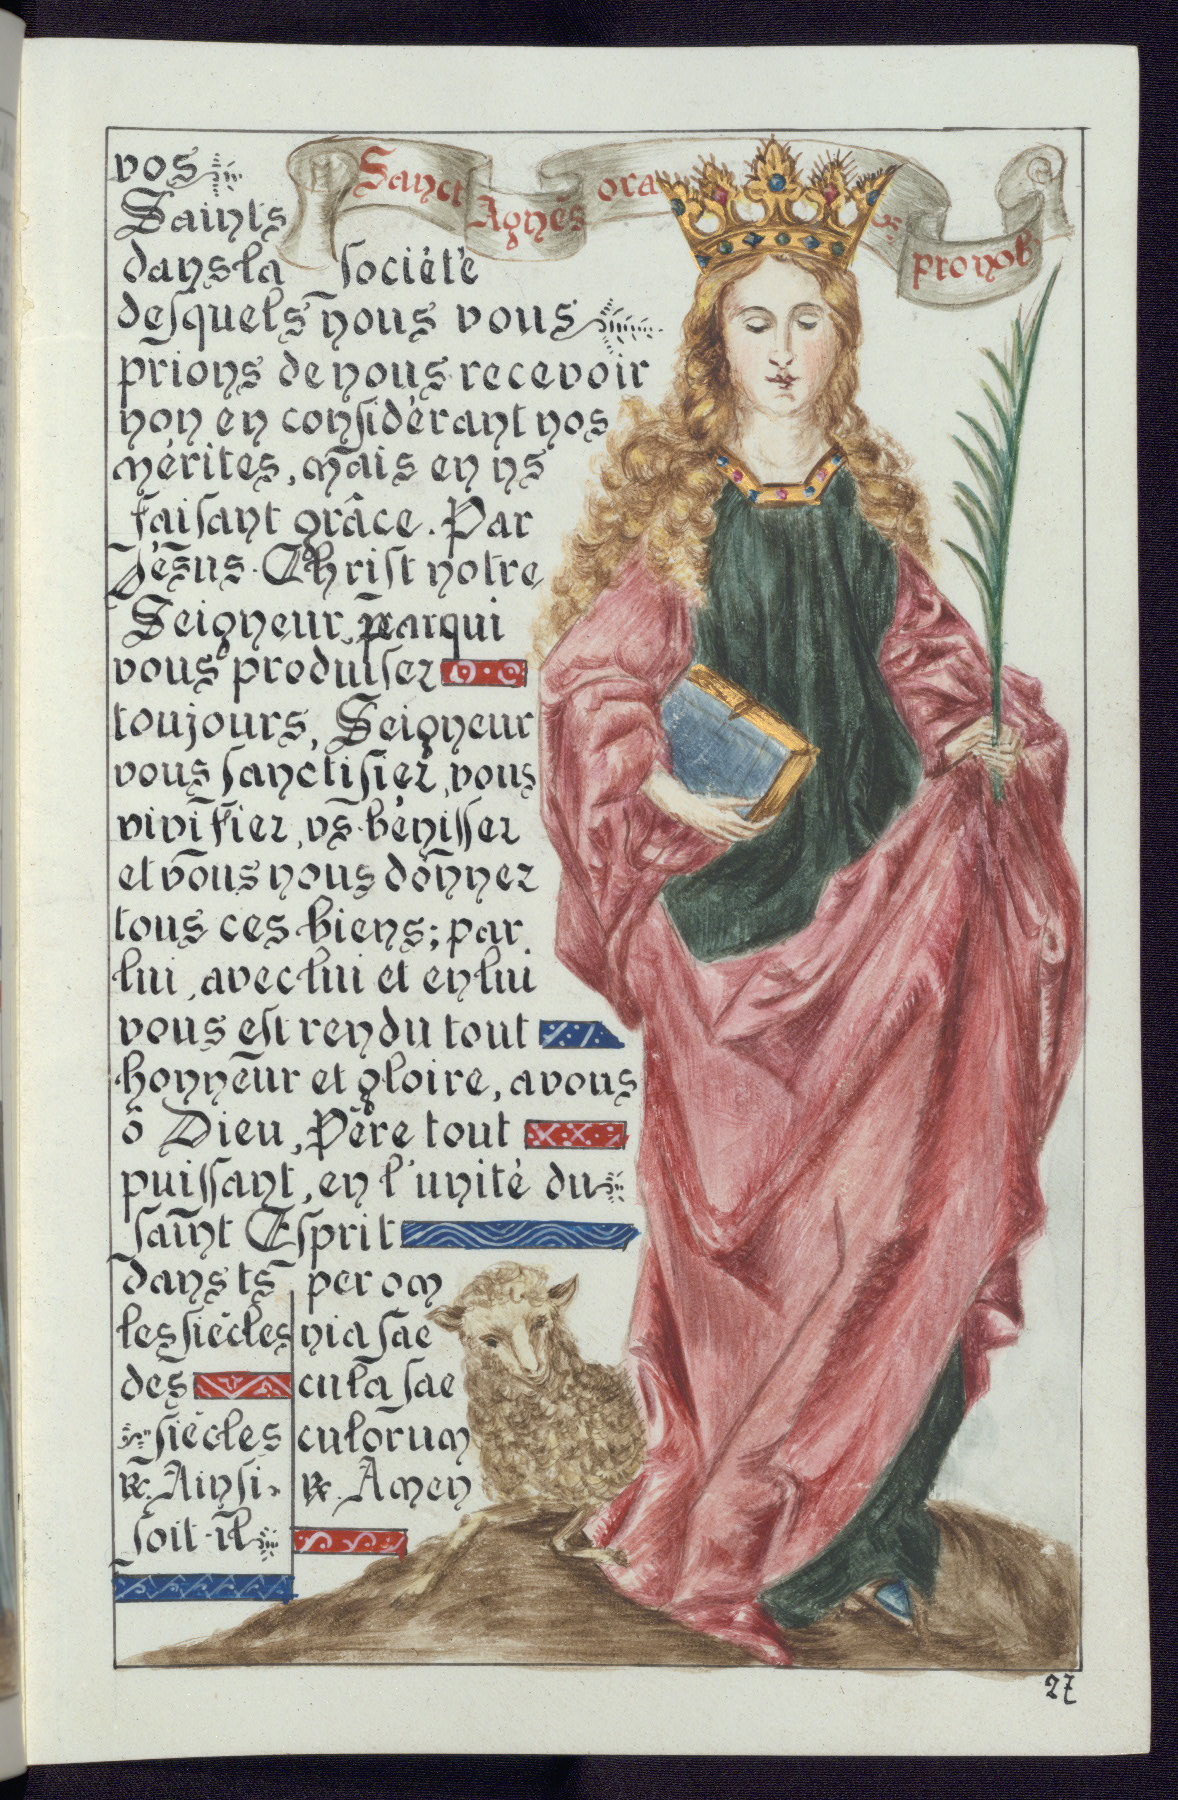 Sanct Agnēs ora pro nob
vos
Saints
dans la société
desquels nous vous
prions de nous recevoir
non en considérant nos
mérites, mais en ns
faisant grâce. Par
Jésus-Christ notre
Seigneur, par qui
vous produisez
toujours, Seigneur
vous sanctifiez, vous
vivifiez, vs bénissez
et vous nous donnez
tous ces biens; par
lui, avec lui et en lui
vous est rendu tout
honneur et gloire, a vous
ô Dieu, Père tout
puissant, en l'unité du
saint Esprit
dans ts
les siècles
des
siècles
℟. Ainsi
soit-il
per om
nia sae
cula sae
culorum
℟. Amen
27